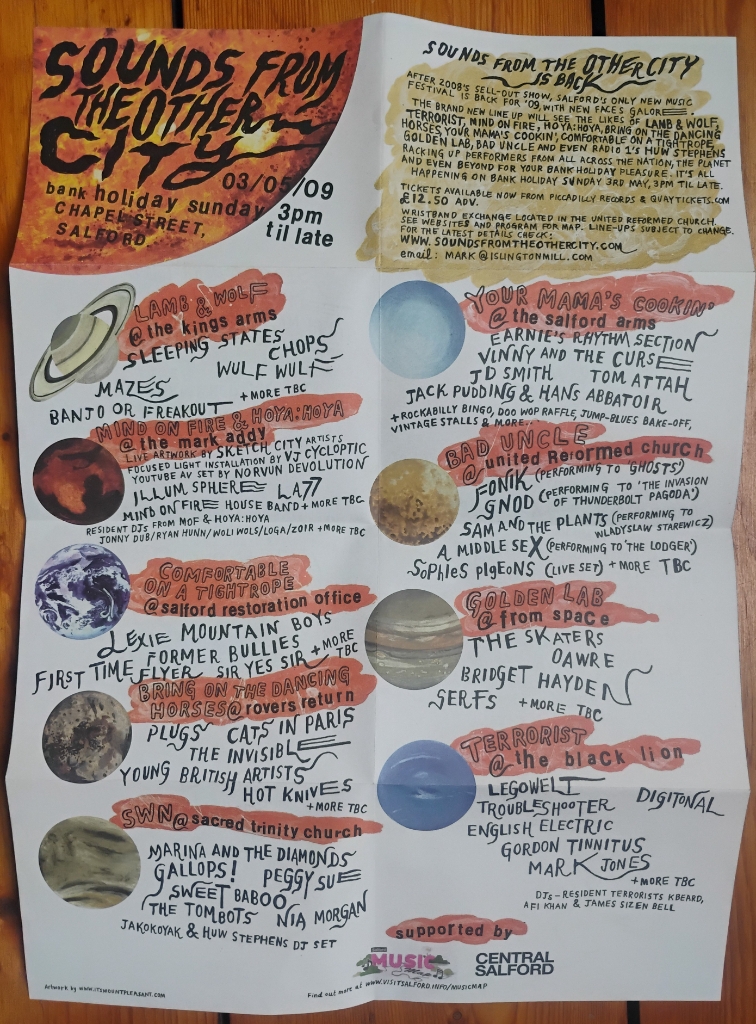 SOUNDS FROM
THE OTHER
CITY
03/05/09
bank holiday sunday
3pm
CHAPEL STREET,
til late
SALFORD
SOUNDS FROM THE OTHER CITY
IS BACK
AFTER 2008'S SELL-OUT SHOW, SALFORD'S ONLY NEW MUSIC
FESTIVAL IS BACK FOR '09, WITH NEW FACES GALORE.
THE BRAND NEW LINE UP WILL SEE THE LIKES OF LAMB & WOLF,
TERRORIST, MIND ON FIRE, HOYA:HOYA, BRING ON THE DANCING
HORSES, YOUR MAMA'S COOKIN', COMFORTABLE ON A TIGHTROPE,
GOLDEN LAB, BAD UNCLE AND EVEN RADIO 1'S HUW STEPHENS
RACKING UP PERFORMERS FROM ALL ACROSS THE NATION, THE PLANET
AND EVEN BEYOND FOR YOUR BANK HOLIDAY PLEASURE. IT'S ALL
HAPPENING ON BANK HOLIDAY SUNDAY 3RD MAY, 3PM TIL LATE.
TICKETS AVAILABLE NOW FROM PICCADILLY RECORDS & QUAYTICKETS.COM
£12.50 ADV.
WRISTBAND EXCHANGE LOCATED IN THE UNITED REFORMED CHURCH.
SEE WEBSITES AND PROGRAM FOR MAP. LINE-UPS SUBJECT TO CHANGE.
FOR THE LATEST DETAILS CHECK:
WWW.SOUNDSFROMTHEOTHERCITY.COM
email: MARK@ISLINGTONMILL.COM
LAMB & WOLF
@ the kings arms
SLEEPING STATES
CHOPS
WULF WULF
MAZES
+MORE TBC
BANJO OR FREAKOUT
MIND ON FIRE & HOYA:HOYA
@ the mark addy
LIVE ARTWORK BY SKETCH CITY ARTISTS
FOCUSED LIGHT INSTALLATION BY VJ CYCLOPTIC
YOUTUBE AV SET BY NORVUN DEVOLUTION
ILLUM SPHERE LA77
MIND ON FIRE HOUSE BAND +MORE TBC
RESIDENT DJs FROM MOF & HOYA:HOYA
JONNY DUB/RYAN HUNN/WOLI WOLS/LOGA/ZOIR +MORE TBC
COMFORTABLE
ON A TIGHTROPE
@ salford restoration office
LEXIE MOUNTAIN BOYS
FORMER BULLIES
FIRST TIME FLYER SIR YES SIR +MORE TBC
BRING ON THE DANCING
HORSES @ rovers return
PLUGS CATS IN PARIS
THE INVISIBLE
YOUNG BRITISH ARTISTS
HOT KNIVES
+MORE TBC
SWN @ sacred trinity church
MARINA AND THE DIAMONDS
GALLOPS! PEGGY SUE
SWEET BABOO
THE TOMBOTS NIA MORGAN
JAKOKOYAK & HUW STEPHENS DJ SET
YOUR MAMA'S COOKIN'
@ the salford arms
EARNIE'S RHYTHM SECTION
VINNY AND THE CURSE
JD SMITH TOM ATTAH
JACK PUDDING & HANS ABBATOIR
+ROCKABILLY BINGO, DOO WOP RAFFLE, JUMP-BLUES BAKE-OFF,
VINTAGE STALLS & MORE...
BAD UNCLE
@ united Reformed church
FONIK (PERFORMING TO 'GHOSTS')
GNOD (PERFORMING TO 'THE INVASION
OF THUNDERBOLT PAGODA')
SAM AND THE PLANTS (PERFORMING TO
WLADYSLAW STAREWICZ)
A MIDDLE SEX (PERFORMING TO 'THE LODGER')
SOPHIES PIGEONS (LIVE SET) + MORE TBC
GOLDEN LAB
@ from space
THE SKATERS
DAWRE
BRIDGET HAYDEN
SERFS +MORE TBC
TERRORIST
@ the black lion
LEGOWELT
DIGITONAL
TROUBLESHOOTER
ENGLISH ELECTRIC
GORDON TINNITUS
MARK JONES
+MORE TBC
DJs - RESIDENT TERRORISTS KBEARD,
AFI KHAN & JAMES SIZEN BELL
supported by
MUSIC
Map
CENTRAL
SALFORD
Artwork by WWW.ITSMOUNTPLEASANT.COM
Find out more at WWW.VISITSALFORD.INFO/MUSICMAP